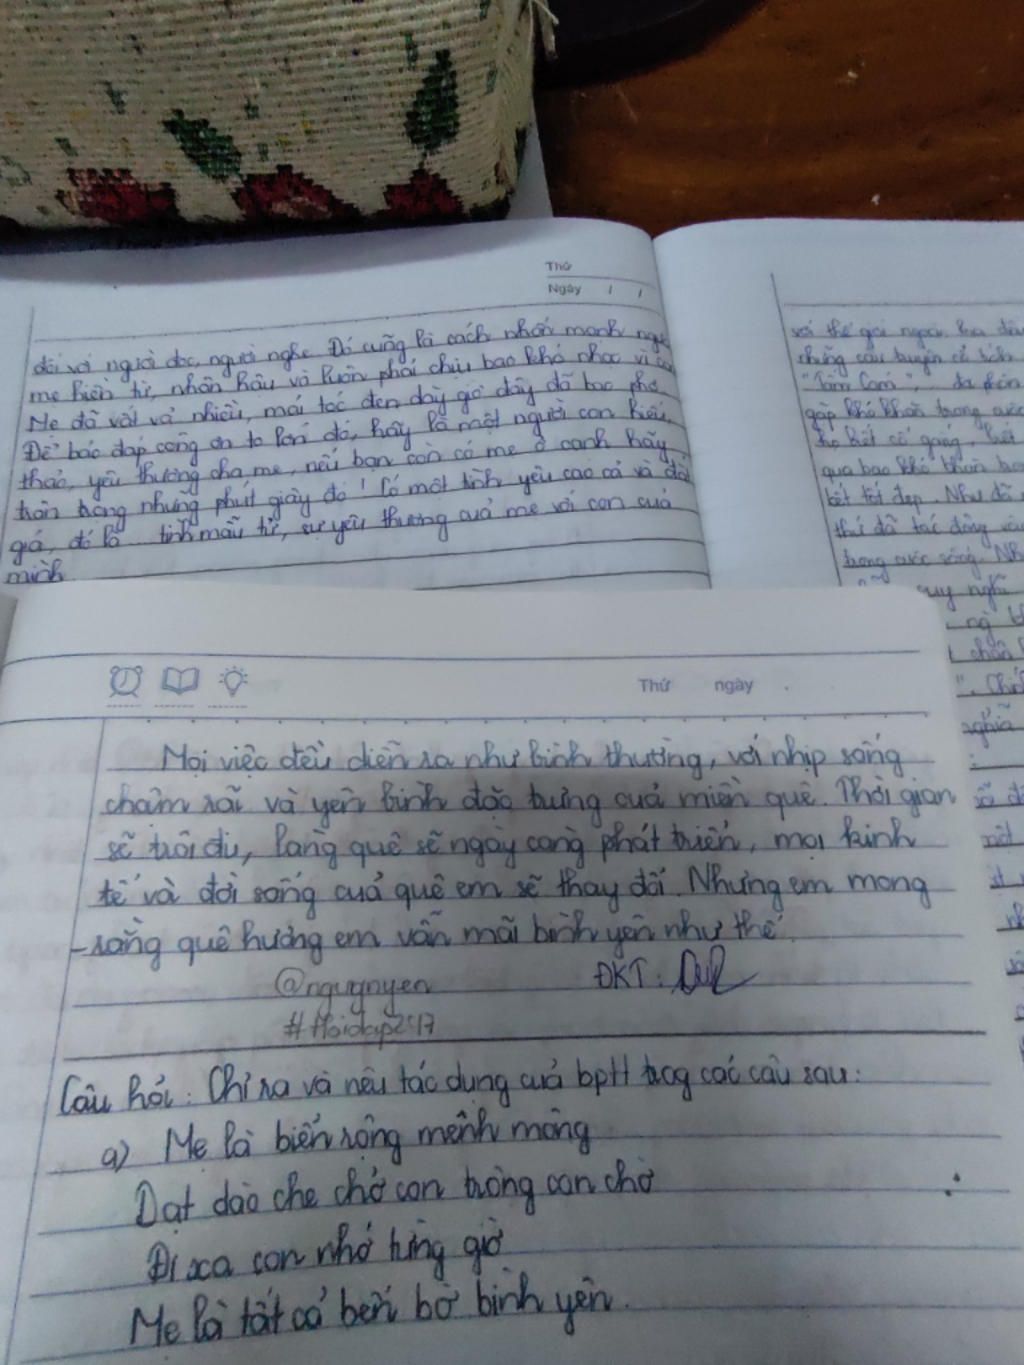 Thứ
Ngày / /
đối với người đọc, người nghe. Đó cũng là cách nhấn mạnh người
mẹ hiền từ, nhân hậu và luôn phải chịu bao khó nhọc vì con
Mẹ đã vất vả nhiều, mái tóc đen dày giờ đây đã bạc phơ.
Để báo đáp công ơn to lớn đó, hãy là một người con hiếu
thảo, yêu thương cha mẹ, nếu bạn còn có mẹ ở cạnh hãy
trân trọng những phút giây đó! Có một tình yêu cao cả và đắt
giá, đó là tình mẫu tử, sự yêu thương của mẹ với con của
mình
với thế giới ngoài
những câu truyện cổ tích
"Tấm Cám",
gặp khó khăn trong cuộc
cố gắng, hết
qua bao khó khăn
kết tốt đẹp. Như đã
thứ đã tác động vào
trong cuộc sống.
suy nghĩ
Thứ ngày
Mọi việc đều diễn ra như bình thường, với nhịp sống
chậm rãi và yên bình đặc trưng của miền quê. Thời gian
sẽ trôi đi, làng quê sẽ ngày càng phát triển, mọi kinh
tế và đời sống của quê em sẽ thay đổi. Nhưng em mong
rằng quê hương em vẫn mãi bình yên như thế.
@nguynyen ĐKT:
#Hoidap247
Câu hỏi: Chỉ ra và nêu tác dụng của bptt trog các câu sau:
a) Mẹ là biển rộng mênh mông
Dạt dào che chở con trông con chờ
Đi xa con nhớ từng giờ
Mẹ là tất cả bến bờ bình yên.